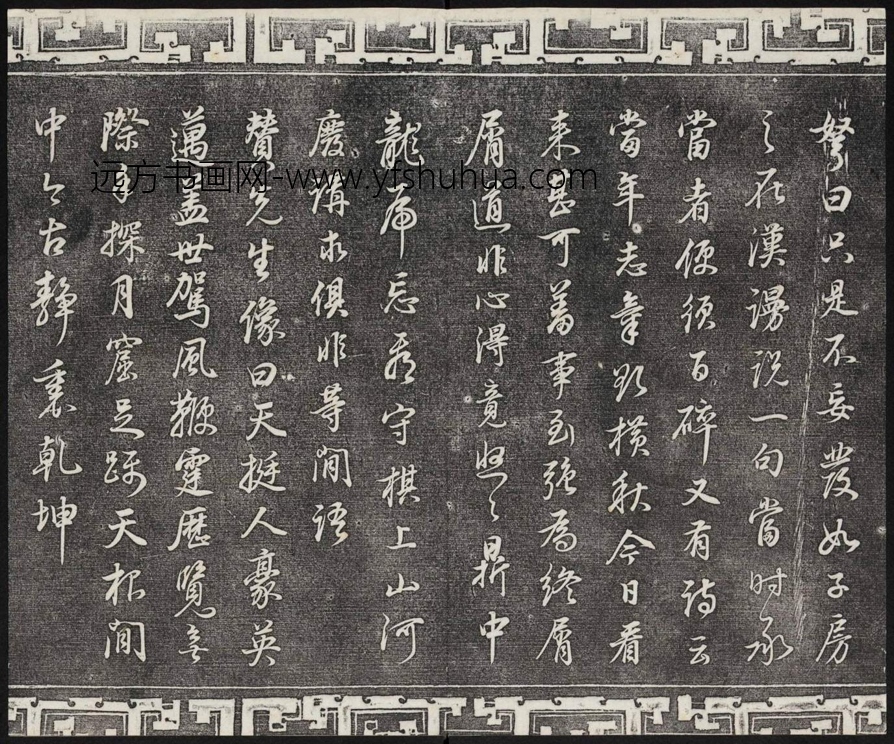 弩曰只是不妄發如子房
之在漢謾説一句當时承
當者便須百碎又有詩云
當年志氣欲橫秋今日看
来甚可羞事到強為終屑
屑道非心得竟悠々鼎中
龍虎忘看守棋上山河
廢講求俱非等閒語
贊先生像曰天挺人豪英
邁盖世駕風鞭霆歷覽無
際手探月窟足躡天根閒
中今古靜裏乾坤
远方书画网-www.yfshuhua.com